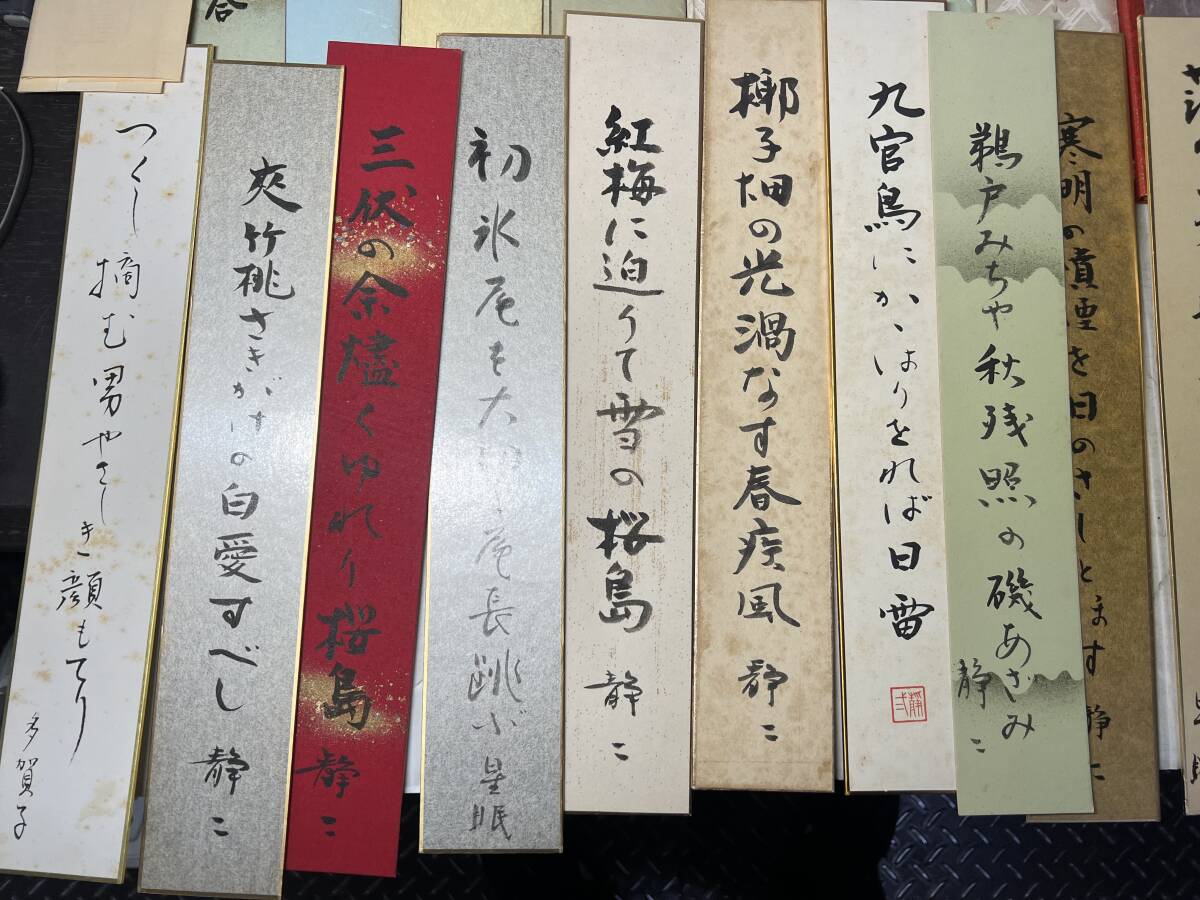 寒明の噴煙を日の
静二
鵜戸みちや秋残照の磯あざみ
静二
九官鳥にかゝはりをれば日雷
椰子畑の光渦なす春疾風
静二
紅梅に迫りて雪の桜島
静二
初氷尾も大
尾長跳ぶ
星眠
三伏の余燼くゆれり桜島
静二
夾竹桃さきがけの白愛すべし
静二
つくし摘む男やさしき顔もてり
多賀子